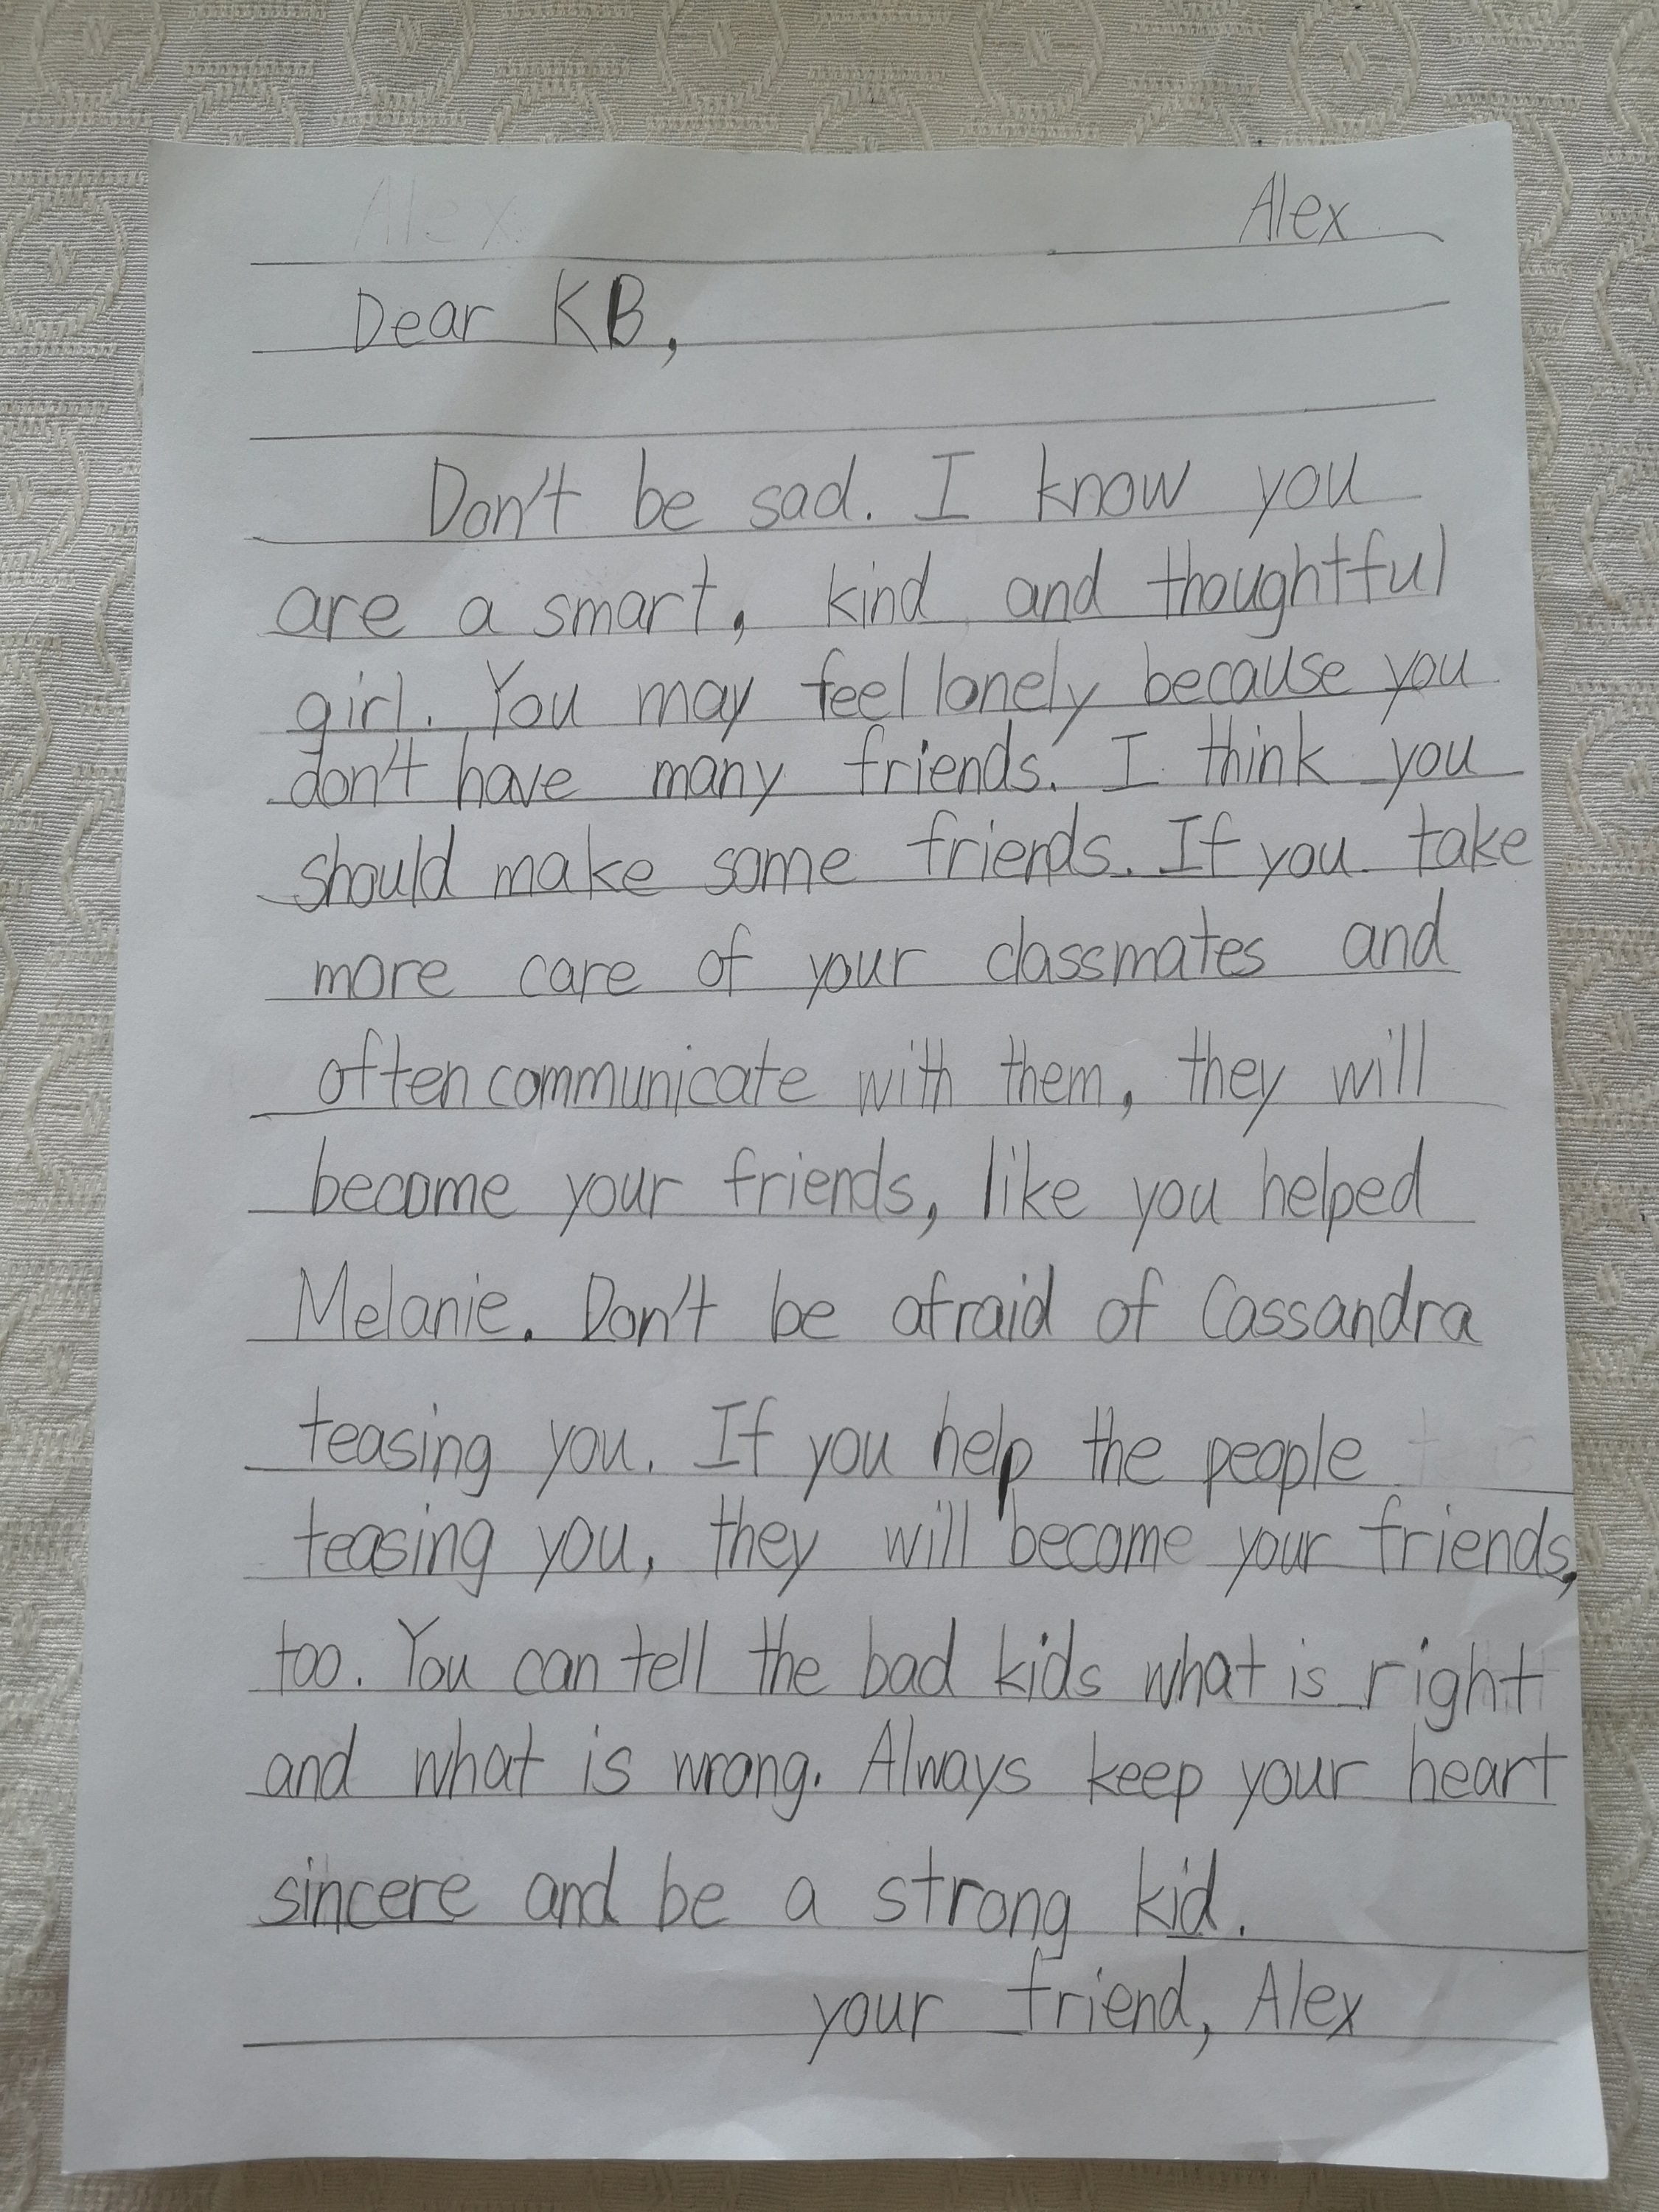 Alex
Alex
Dear KB,
Don't be sad. I know you
are a smart, kind and thoughtful
girl. You may feel lonely because you
don't have many friends. I think you
should make some friends. If you take
more care of your classmates and
often communicate with them, they will
become your friends, like you helped
Melanie. Don't be afraid of Cassandra
teasing you. If you help the people
teasing you, they will become your friends,
too. You can tell the bad kids what is right
and what is wrong. Always keep your heart
sincere and be a strong kid.
your friend, Alex